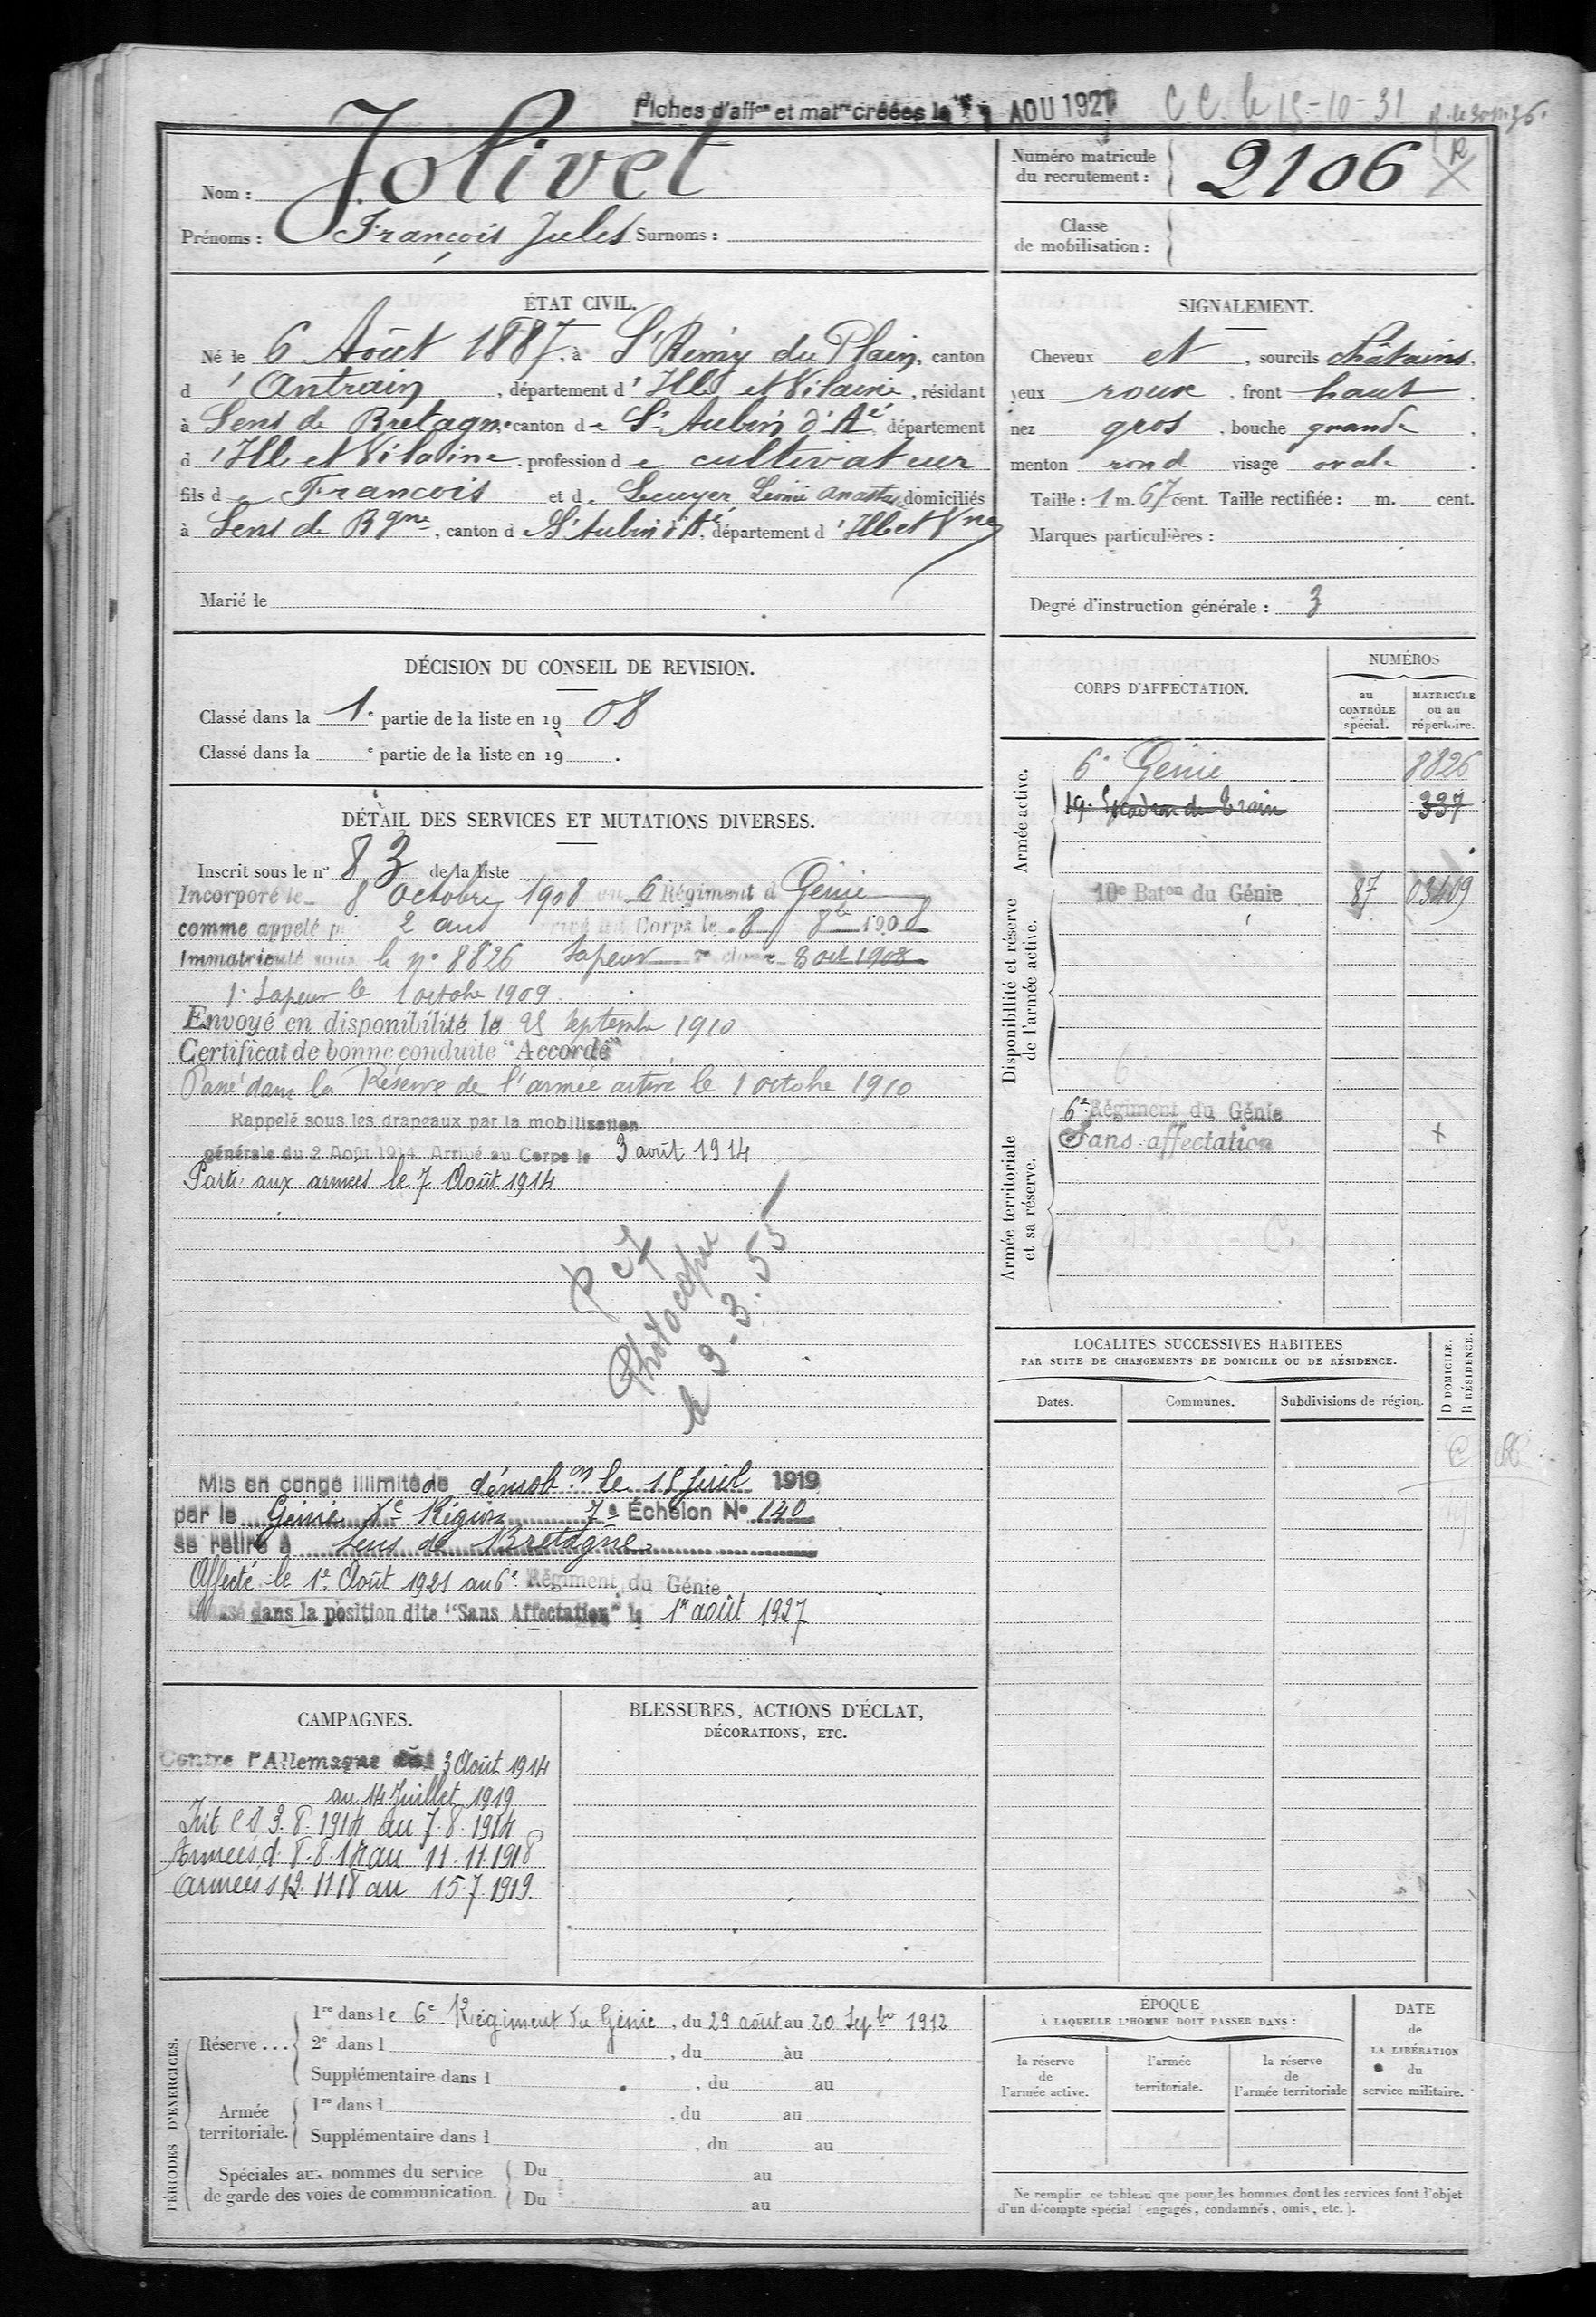 Fiches d'aff^on et mat^re créées le AOU 1927 C C. le 15-10-31
Nom : Jolivet
Prénoms : François Jules Surnoms :
Numéro matricule
du recrutement : 2106
Classe
de mobilisation :
ÉTAT CIVIL.
Né le 6 Août 1887, à S^t Rémy du Plain, canton
d'Antrain, département d'Ille et Vilaine, résidant
à Sens de Bretagne canton de S^t Aubin d'A^é, département
d'Ille et Vilaine, profession de cultivateur
fils de François et de Lecuyer Léonie Anastas domiciliés
à Sens de B^gne, canton d e S^t Aubin d'A^é, département d'Ille et V^ne
Marié le
SIGNALEMENT.
Cheveux et, sourcils châtains,
yeux roux, front haut,
nez gros, bouche grande,
menton rond visage ovale.
Taille : 1 m. 67 cent. Taille rectifiée : m. cent.
Marques particulières :
Degré d'instruction générale : 3
DÉCISION DU CONSEIL DE REVISION.
Classé dans la 1^e partie de la liste en 1908
Classé dans la ^e partie de la liste en 19 .
DÉTAIL DES SERVICES ET MUTATIONS DIVERSES.
Inscrit sous le n° 83 de la liste
Incorporé le 8 octobre 1908 au 6 Régiment d Génie
comme appelé p 2 ans Corps le 8 8^bre 1908
Immatriculé sous le n° 8826 Sapeur 2^e classe 8 oct 1908
1^r Sapeur le 1 octobre 1909.
Envoyé en disponibilité le 25 septembre 1910
Certificat de bonne conduite "Accordé"
Passé dans la Réserve de l'armée active le 1 octobre 1910
Rappelé sous les drapeaux par la mobilisation
générale du 2 Août 1914. Arrivé au Corps le 3 août 1914
Parti aux armées le 7 Août 1914
Photocopie
le 3-3.55
Mis en congé illimité de démob^on le 15 Juil 1919
par le Génie X^e Région 7^e Échelon N° 140
se retire à Sens de Bretagne
Affecté le 1^e Août 1921 au 6^e Régiment du Génie
Classé dans la position dite "Sans Affectation" le 1^er août 1927
CORPS D'AFFECTATION.
NUMÉROS
au
CONTRÔLE
spécial.
MATRICULE
ou au
répertoire.
Armée active.
6^e Génie 8826
19^e Escadron du Train 337
Disponibilité et réserve
de l'armée active.
10^e Bat^on du Génie 87 03409
Armée territoriale
et sa réserve.
6^e Régiment du Génie
Sans affectation +
LOCALITÉS SUCCESSIVES HABITÉES
PAR SUITE DE CHANGEMENTS DE DOMICILE OU DE RÉSIDENCE.
Dates. Communes. Subdivisions de région.
D DOMICILE.
R RÉSIDENCE.
CAMPAGNES.
Contre l'Allemagne du 3 Août 1914
au 14 Juillet 1919
Int C S 3.8.1914 au 7.8.1914
Armées d. 8.8.14 au 11.11.1918
Armées s 12.11 18 au 15.7.1919.
BLESSURES, ACTIONS D'ÉCLAT,
DÉCORATIONS, ETC.
PÉRIODES D'EXERCICES.
Réserve ...
1^re dans le 6^e Régiment du Génie, du 29 août au 20 Sep^bre 1912
2^e dans l , du au
Supplémentaire dans l , du au
Armée
territoriale.
1^re dans l , du au
Supplémentaire dans l , du au
Spéciales aux hommes du service
de garde des voies de communication.
Du au
Du au
ÉPOQUE
À LAQUELLE L'HOMME DOIT PASSER DANS :
la réserve
de
l'armée active.
l'armée
territoriale.
la réserve
de
l'armée territoriale
DATE
de
LA LIBÉRATION
du
service militaire.
Ne remplir ce tableau que pour les hommes dont les services font l'objet
d'un décompte spécial (engagés, condamnés, omis, etc.).